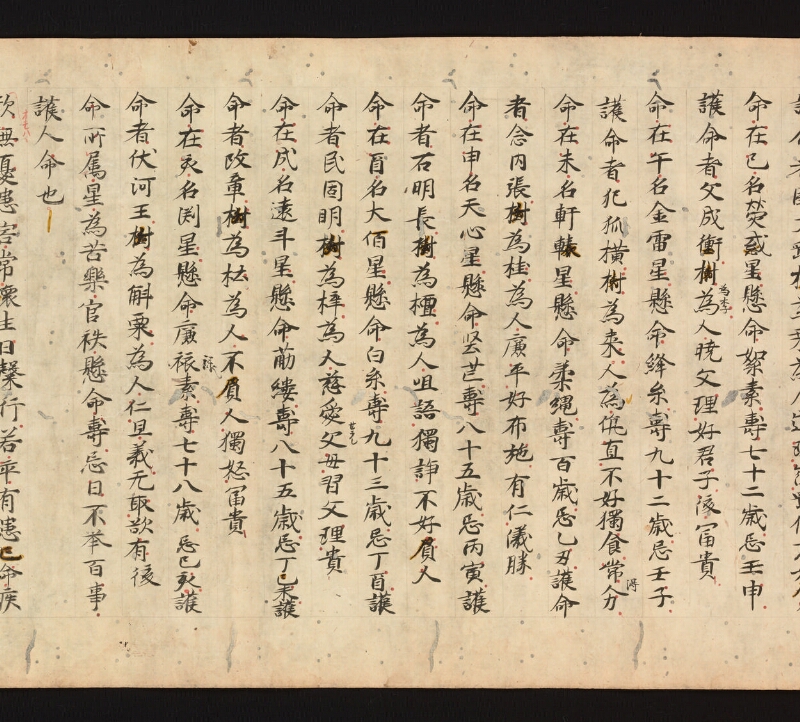 命在巳名熒惑星懸命絮素壽七十二歲忌壬申
護命者父成衝樹為人曉文理好君子後冨貴
為李
命在午名金雷星懸命絳糸壽九十二歲忌壬子
護命者犯狐橫樹為棗人為仇直不好獨食常分
得
命在未名軒轅星懸命柔繩壽百歲忌乙丑護命
者念內張樹為桂為人廣平好布施有仁儀勝
命在申名天心星懸命坚芒壽八十五歲忌丙寅護
命者石明長樹為檀為人咀語獨諍不好屓人
命在酉名大佰星懸命白糸壽九十三歲忌丁酉護
命者民固明樹為梓為人慈愛父母習文理貴
命在戌名遠斗星懸命莇縷壽八十五歲忌丁巳未護
命者改章樹為枯為人不屓人獨怒冨貴
命在亥名渕星懸命廣袚素壽七十八歲忌巳亥護
命者伏河王樹為斛粟為人仁且義无取欲有後
命所屬星為苦樂官袟懸命壽忌日不举百事
護人命也
無憂患害常懷生日槃行若卒有患巳命疾